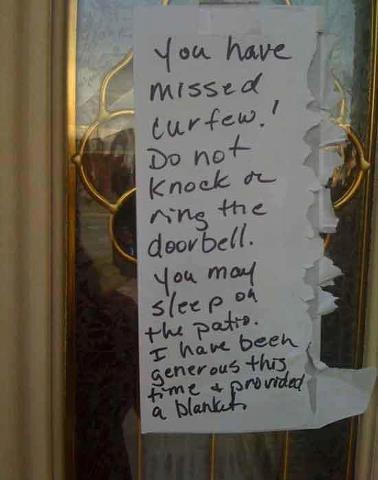 You have
missed
curfew!
Do not
knock or
ring the
doorbell.
You may
sleep on
the patio.
I have been
generous this
time + provided
a blanket.